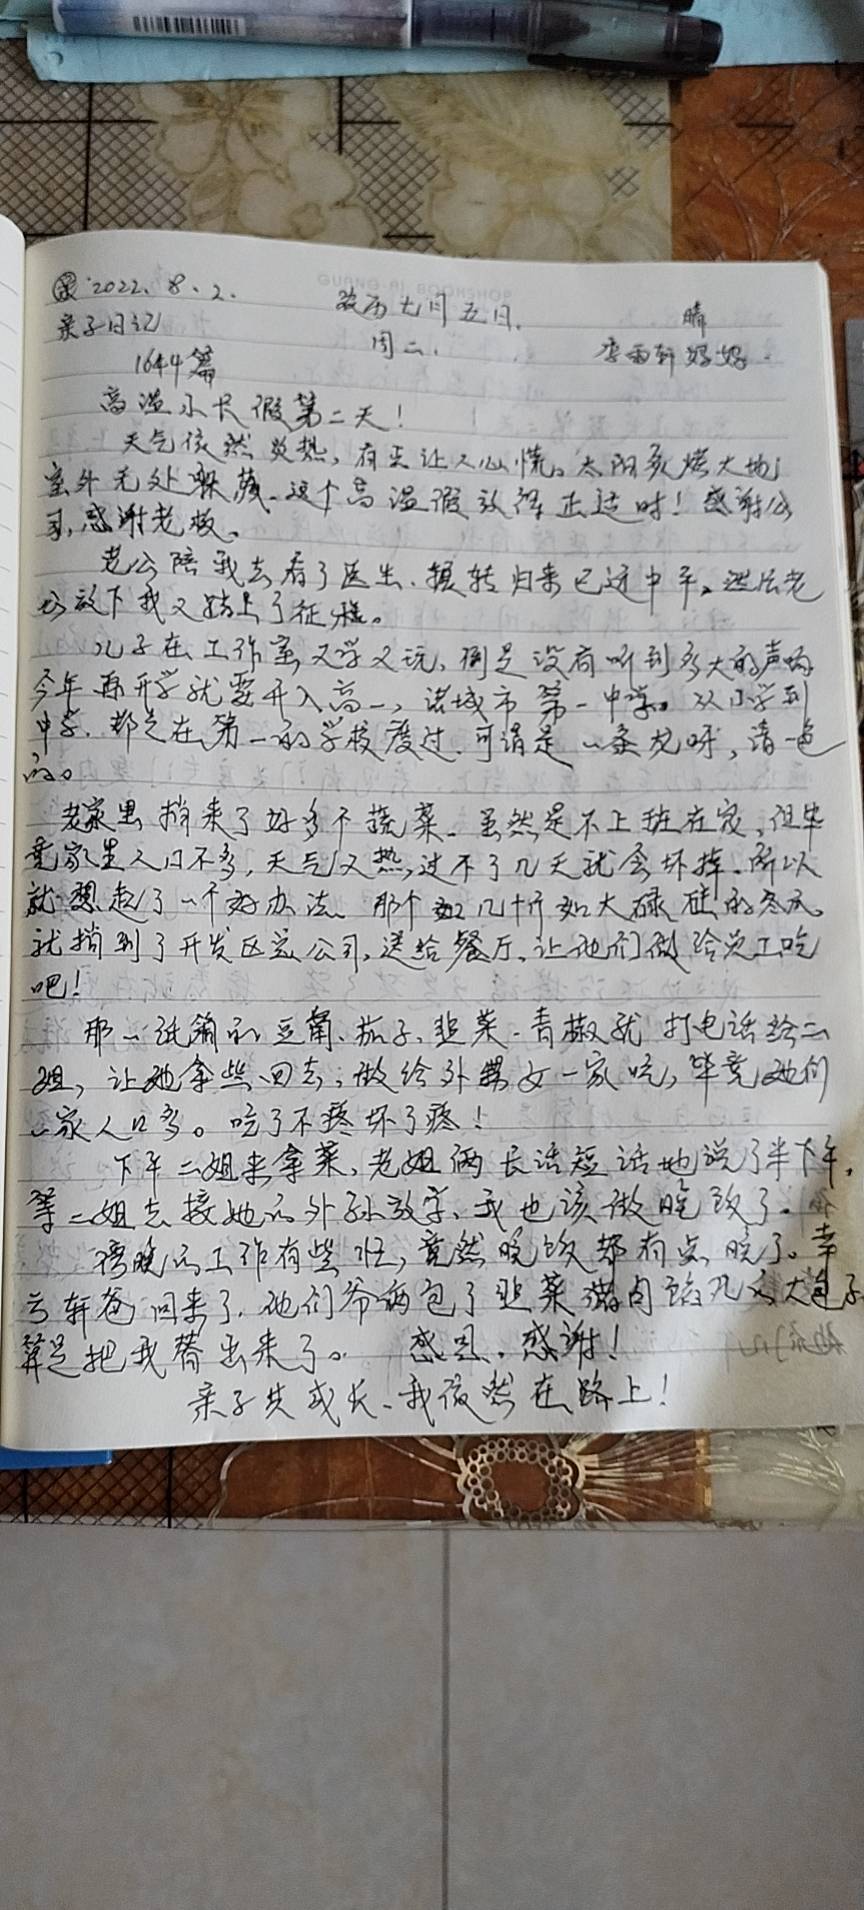 2022.8.2. 农历七月五日. 晴
亲子日记 周二. 李雨轩妈妈.
1644篇
高温小长假第二天!
天气依然炎热,有点让人心慌。太阳炙烤大地,
室外无处躲藏、这个高温假放得正适时!感谢公
司,感谢老板。
老公陪我去看了医生、辗转归来已近中午。进店老
公放下我又踏上了征程。
儿子在工作室又学又玩,倒是没有听到多大的声响
今年再开学就要升入高一,诸城市第一中学。从小学到
中学、都是在第一的学校度过、可谓是一条龙呀,清一色
的。
老家里捎来了好多个蔬菜、虽然是不上班在家,但毕
竟家里人口不多,天气又热,过不了几天就会坏掉、所以
就想起了一个好办法、那个如几十斤如大碌碡的冬瓜。
就捎到了开发区宏公司,送给餐厅、让他们做给员工吃
吧!
那一纸箱和豆角、茄子、韭菜、青椒就打电话给二
姐,让她拿些回去,做给外甥女一家吃,毕竟她们
一家人口多。吃了不疼坏了疼!
下午二姐来拿菜、老姐俩长话短话地说了半下午,
等二姐去接她的外孙放学、我也该做晚饭了。
傍晚的工作有些忙,竟然晚饭都有点晚了。幸
亏轩爸回来了、他们爷俩包了韭菜猪肉馅儿的大包子
算是把我替出来了。 感恩、感谢!
亲子共成长、我依然在路上!